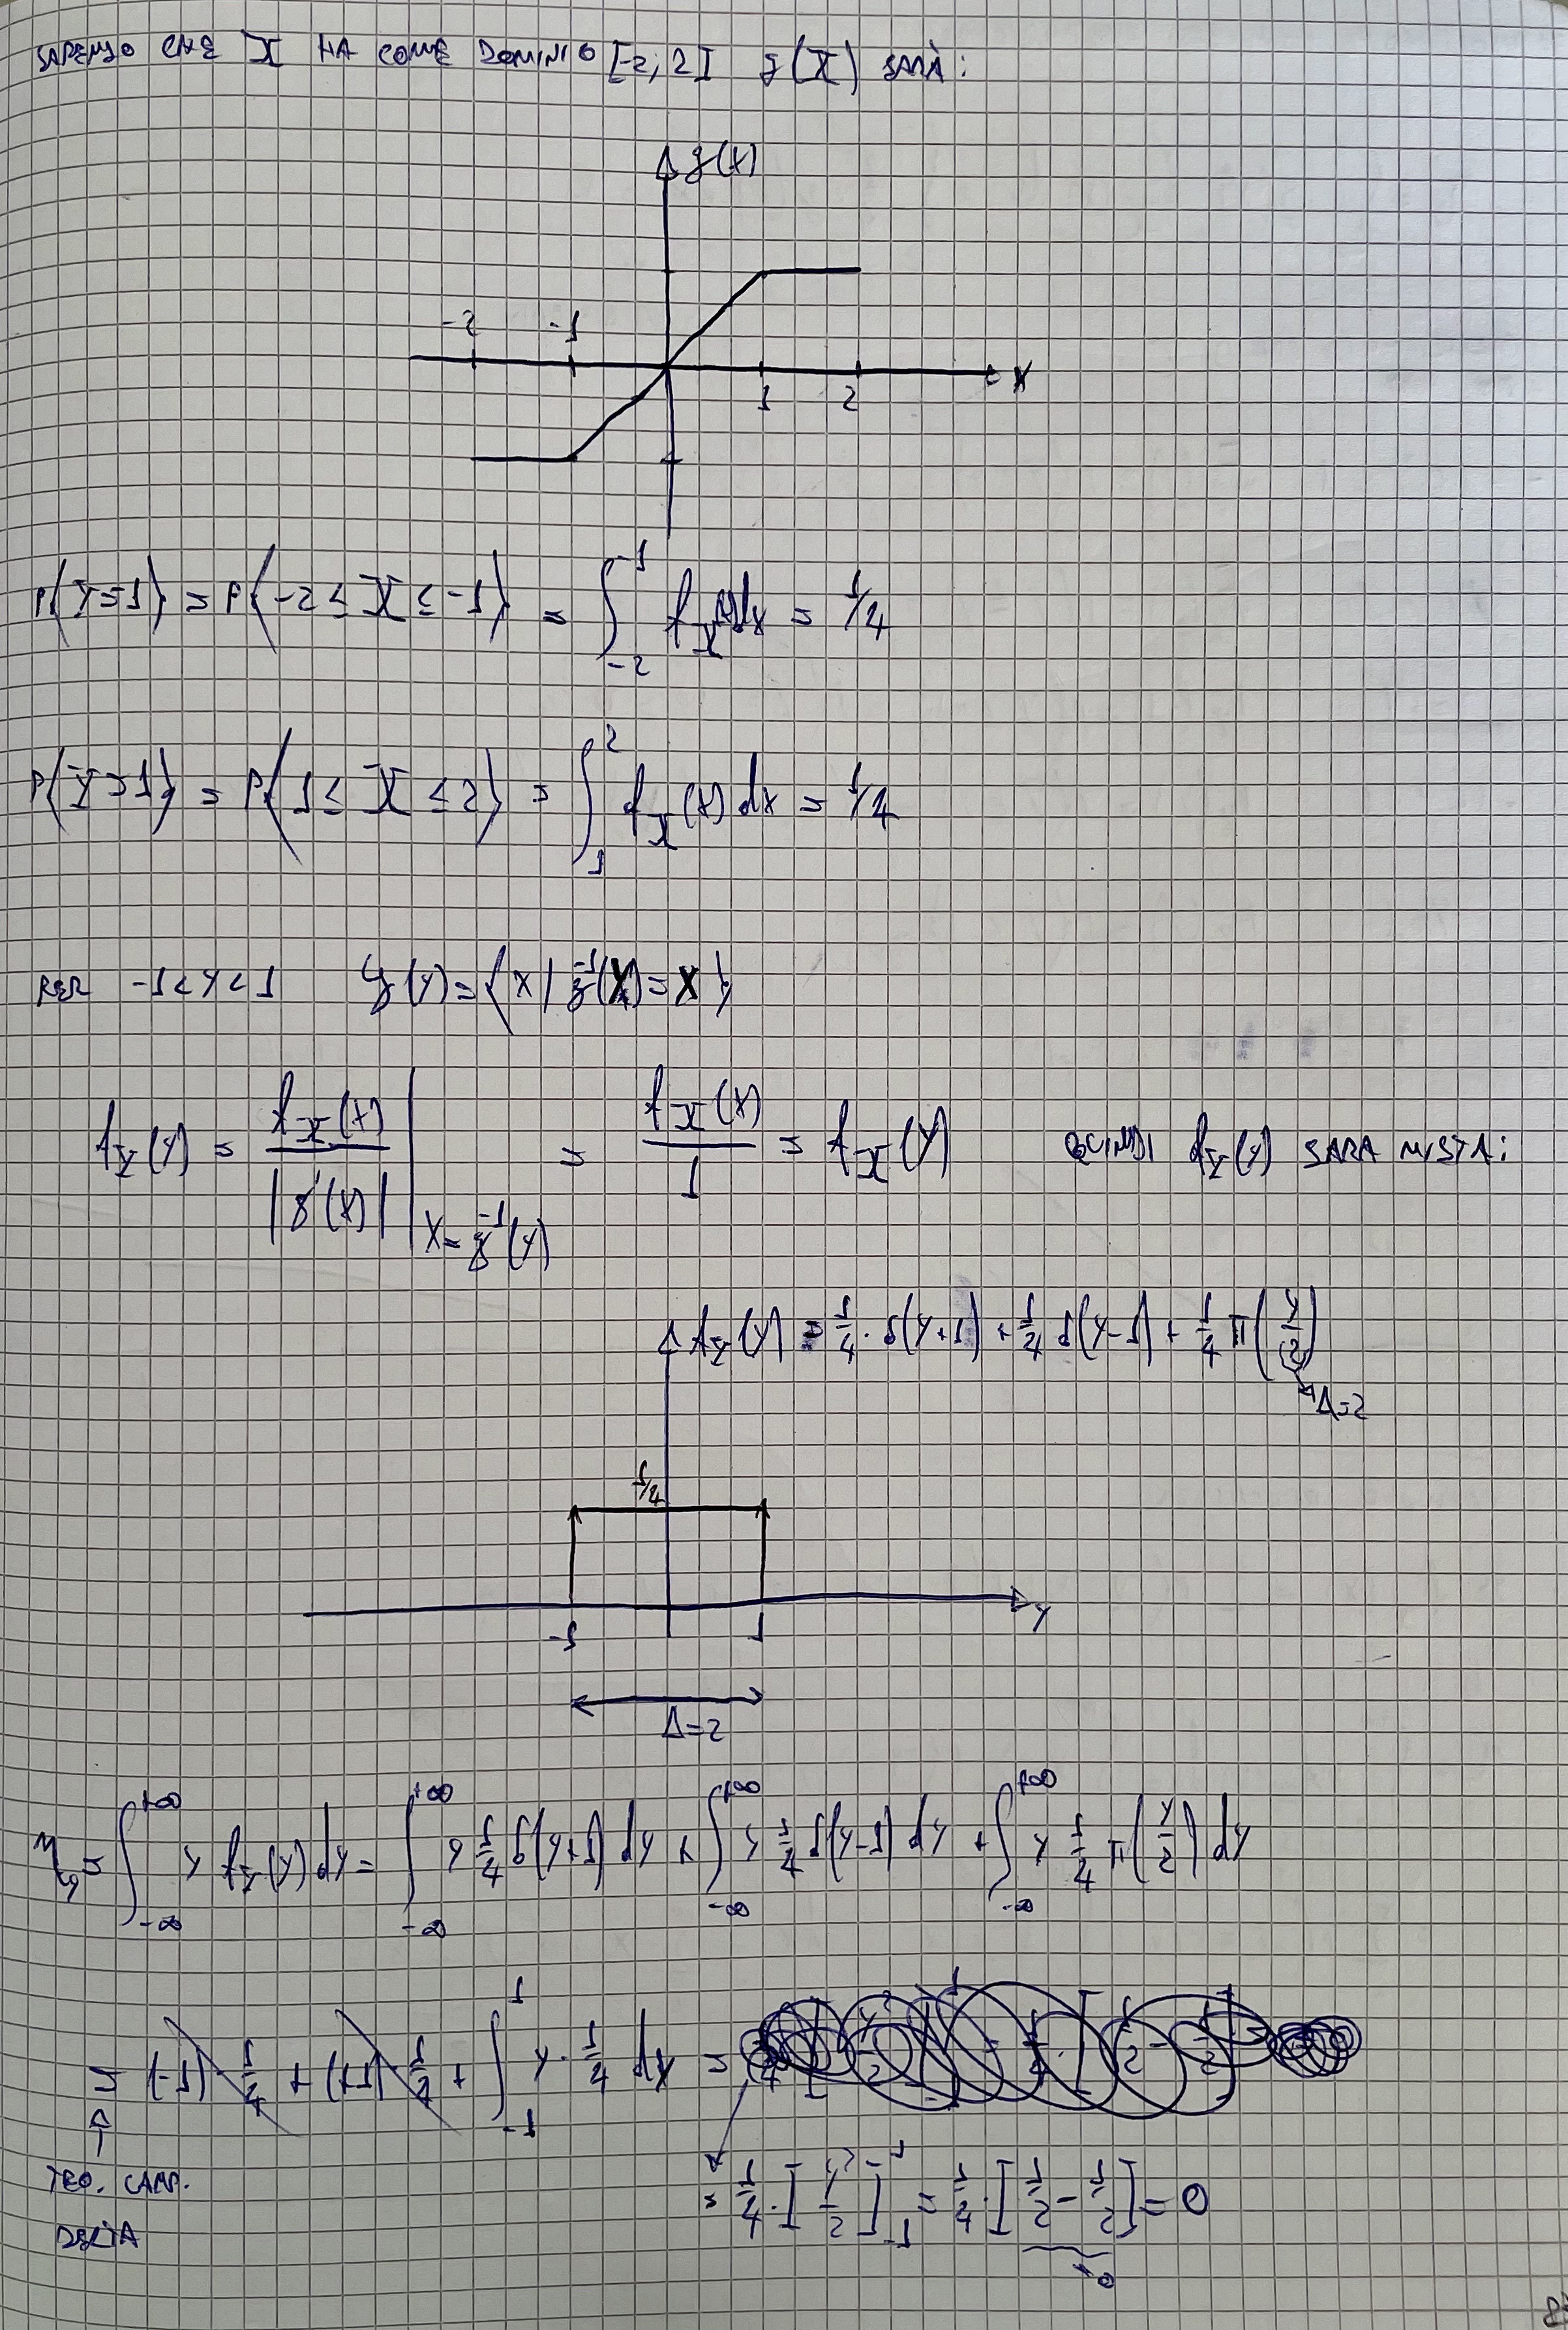 SAPENDO CHE X HA COME DOMINIO [-2; 2] g(X) SARÀ:
g(x)
-2 -1
1 2 x
P{Y=1} = P{-2 ≤ X ≤ -1} = ∫_{-2}^{-1} f_X(x)dx = 1/4
P{Y=1} = P{1 ≤ X ≤ 2} = ∫_{1}^{2} f_X(x) dx = 1/4
PER -1<y<1 g(y) = {x | g^{-1}(x) = x}
f_Y(y) = f_X(x) / |g'(x)| |_{x = g^{-1}(y)} = f_X(x) / 1 = f_X(y) QUINDI f_Y(y) SARA MISTA:
f_Y(y) = 1/4 · δ(y+1) + 1/4 δ(y-1) + 1/4 π(y/2)
Δ=2
1/4
-1 1 y
Δ=2
η_y = ∫_{-∞}^{+∞} y f_Y(y) dy = ∫_{-∞}^{+∞} y 1/4 δ(y+1) dy + ∫_{-∞}^{+∞} y 1/4 δ(y-1) dy + ∫_{-∞}^{+∞} y 1/4 π(y/2) dy
= (-1) · 1/4 + (+1) · 1/4 + ∫_{-1}^{1} y · 1/4 dy =
TEO. CAMP.
DELTA
= 1/4 · [y²/2]_{-1}^{1} = 1/4 · [1/2 - 1/2] = 0
0